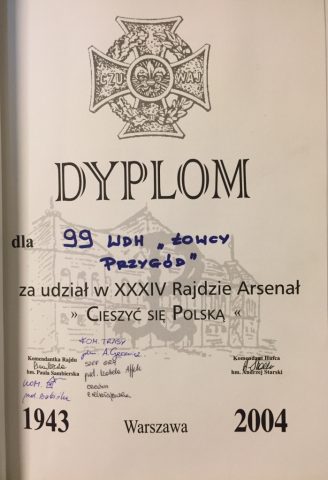 CZU WAJ
DYPLOM
dla 99 WDH „ŁOWCY
PRZYGÓD"
za udział w XXXIV Rajdzie Arsenał
» CIESZYĆ SIĘ POLSKĄ «
KOM. TRASY
SZEF
Komendantka Rajdu
hm. Paula Sambierska
Komendant Hufca
hm. Andrzej Starski
1943 Warszawa 2004